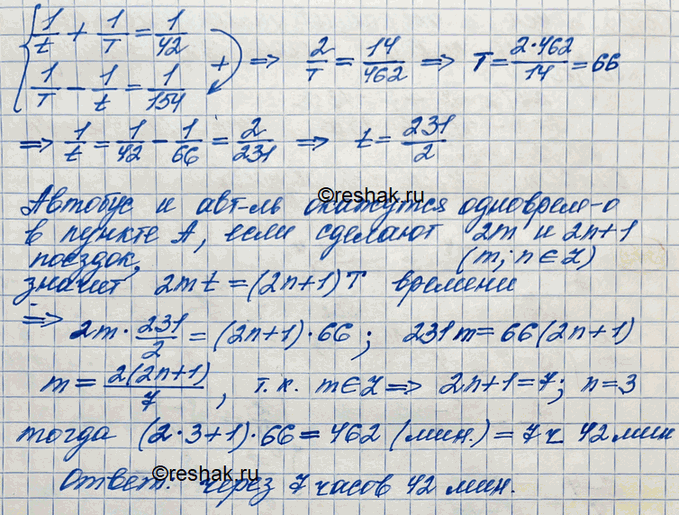 1/t + 1/T = 1/42
1/T - 1/t = 1/154
+ => 2/T = 14/462 => T = 2·462/14 = 66
=> 1/t = 1/42 - 1/66 = 2/231 => t = 231/2
©reshak.ru
Автобус и авт-ль окажутся одноврем-о
в пункте А, если сделают 2m и 2n+1
поездок, (m; n ∈ Z)
значит 2mt = (2n+1)T времени
=> 2m · 231/2 = (2n+1)·66; 231m = 66(2n+1)
m = 2(2n+1)/7, т.к. m ∈ Z => 2n+1 = 7; n = 3
тогда (2·3+1)·66 = 462 (мин.) = 7 ч 42 мин
©reshak.ru
Ответ: через 7 часов 42 мин.